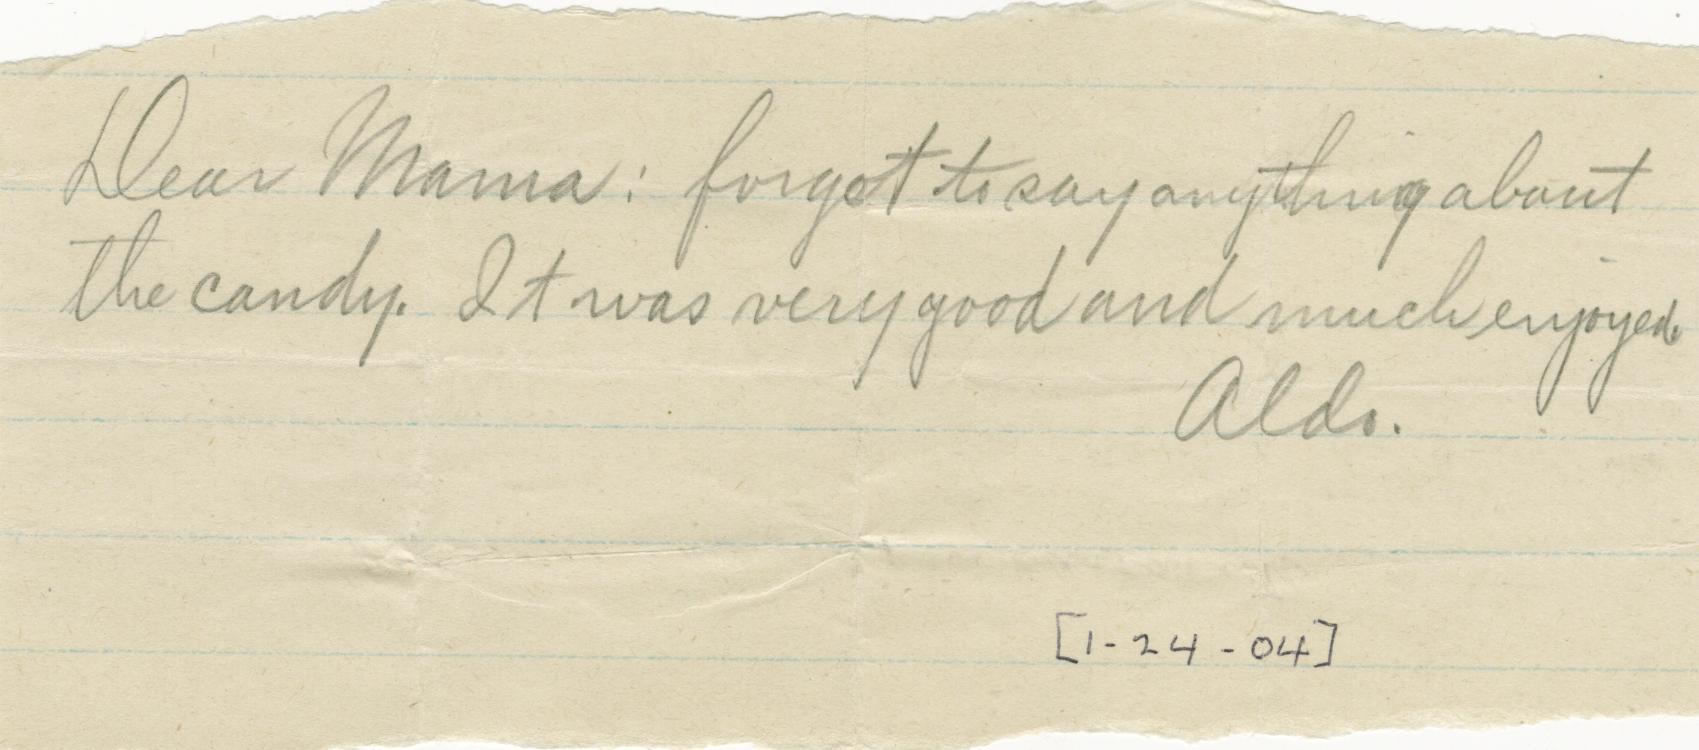 Dear Mama: forgot to say anything about
the candy. It was very good and much enjoyed.
Aldo.
[1-24-04]